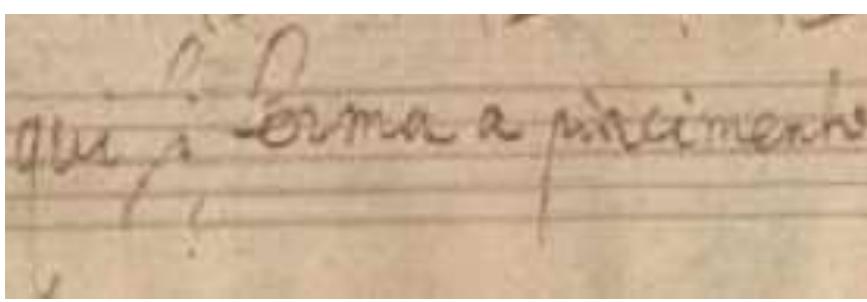 qui si ferma a piacimento